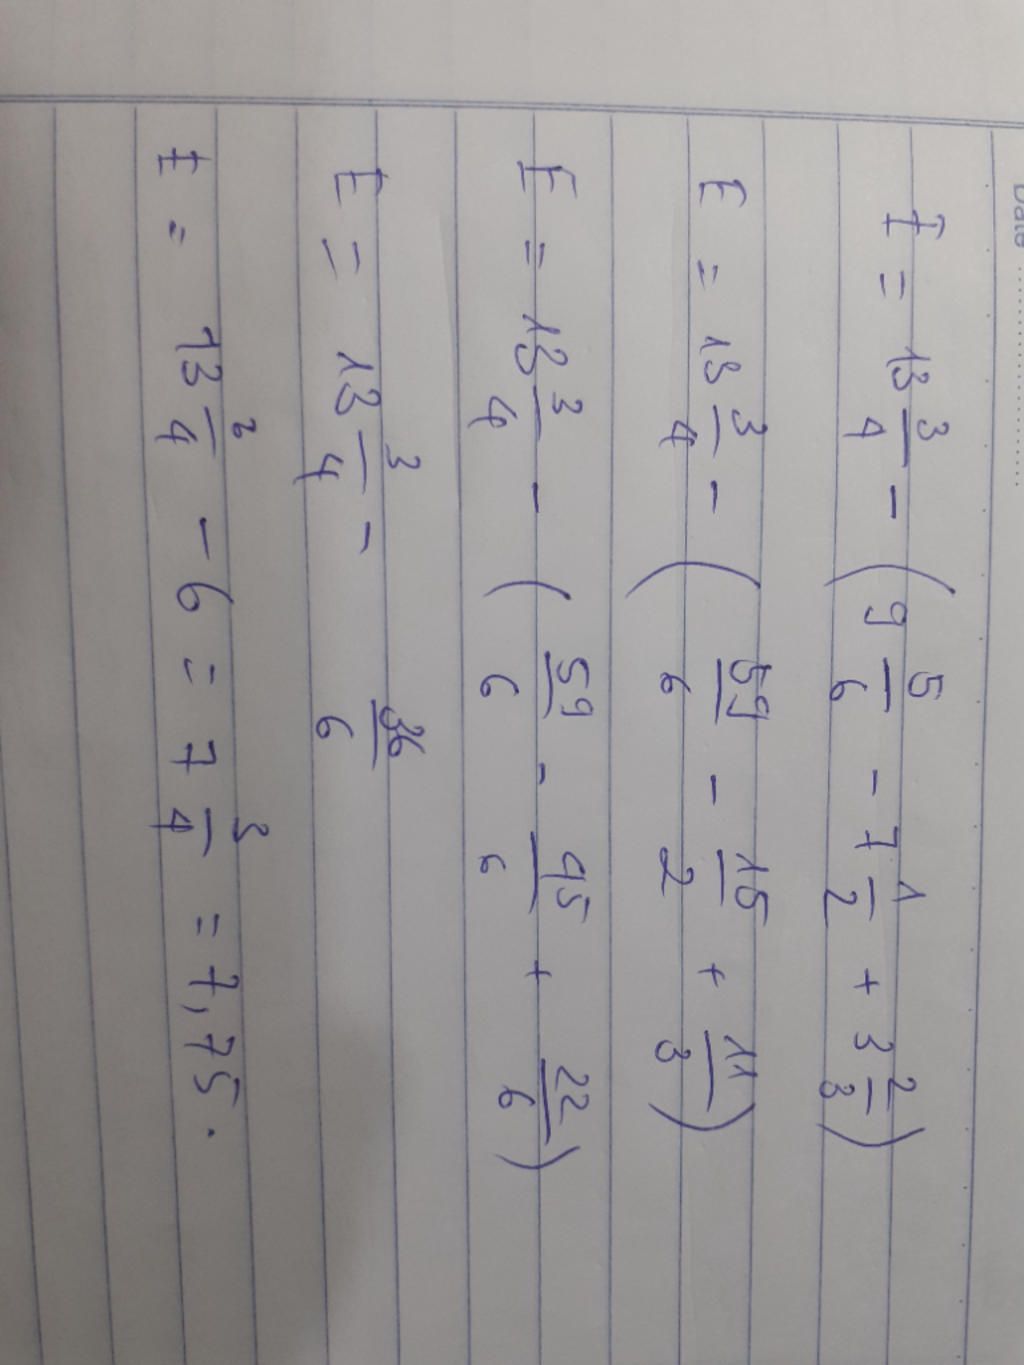 Date ....................
E = 13 3/4 - (9 5/6 - 7 1/2 + 3 2/3)
E = 13 3/4 - (59/6 - 15/2 + 11/3)
E = 13 3/4 - (59/6 - 45/6 + 22/6)
E = 13 3/4 - 36/6
E = 13 3/4 - 6 = 7 3/4 = 7,75.